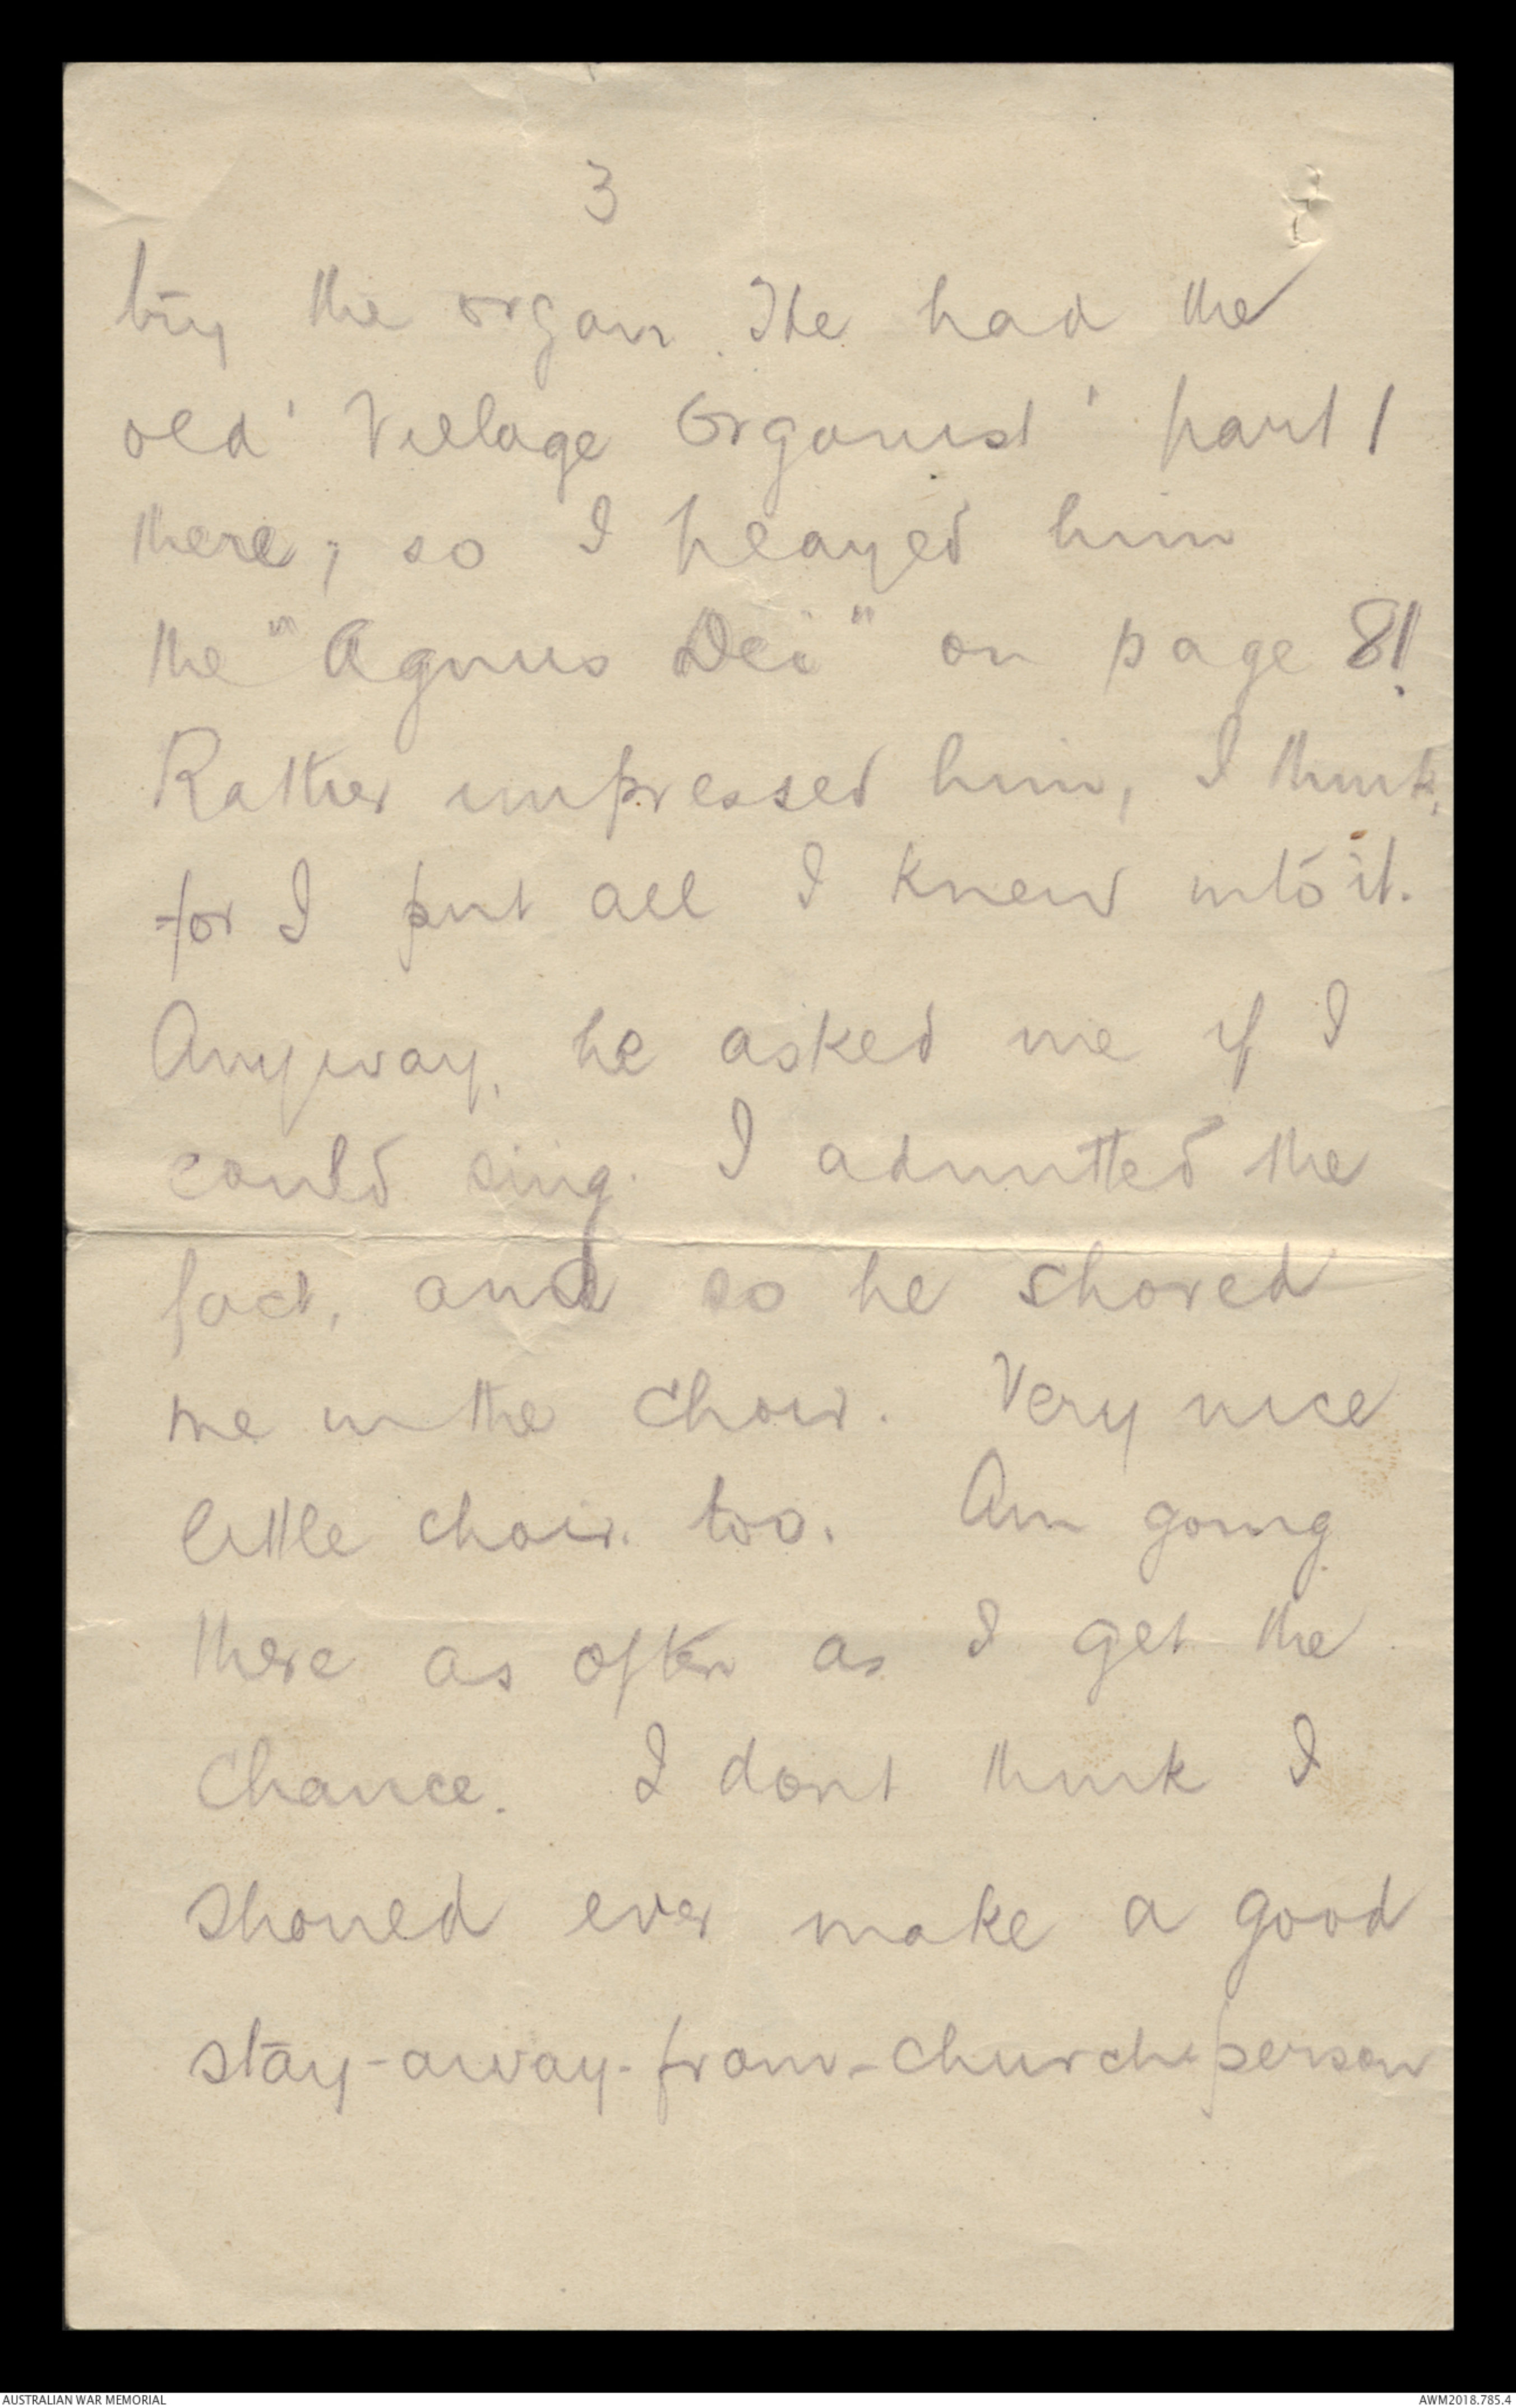 3
try the organ. He had the
old 'Village Organist' part 1
there, so I played him
the "Agnus Dei" on page 8!
Rather impressed him, I think,
for I put all I knew into it.
Anyway, he asked me if I
could sing. I admitted the
fact, and so he shoved
me in the choir. Very nice
little choir. too. Am going
there as often as I get the
chance. I dont think I
should ever make a good
stay-away-from-church-person
AUSTRALIAN WAR MEMORIAL
AWM2018.785.4